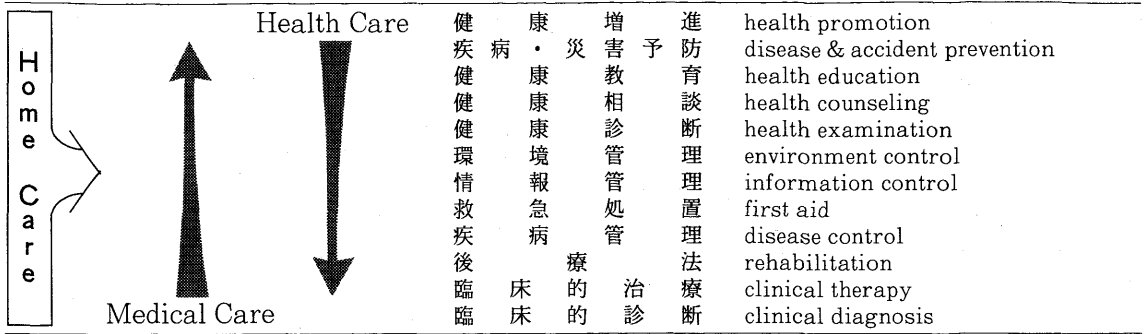 Home Care
Health Care
Medical Care
健康増進 health promotion
疾病・災害予防 disease & accident prevention
健康教育 health education
健康相談 health counseling
健康診断 health examination
環境管理 environment control
情報管理 information control
救急処置 first aid
疾病管理 disease control
後療法 rehabilitation
臨床的治療 clinical therapy
臨床的診断 clinical diagnosis